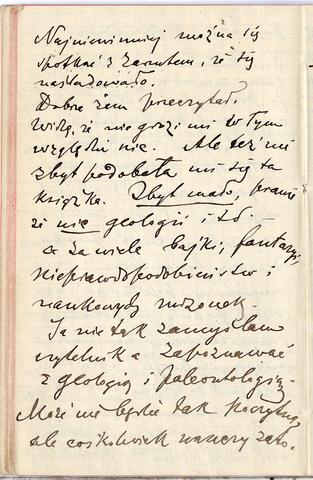 Najmniemniej można się
spotkać z zarzutem, że się
naśladowało.
Dobrze żem przeczytał.
Widzę, że nie grozi mi w tym
względzie nic. Ale też nie
zbyt podobała mi się ta
książka. Zbyt mało, prawie
że nie geologii i t.d. —
a za wiele bajki, fantazyi,
nieprawdopodobieństw i
naukowych mrzonek.
Ja nie tak zamyślam
czytelnika zapoznawać
z geologią i paleontologią.
Może nie będzie tak poczytne,
ale cośkolwiek nauczy zato.